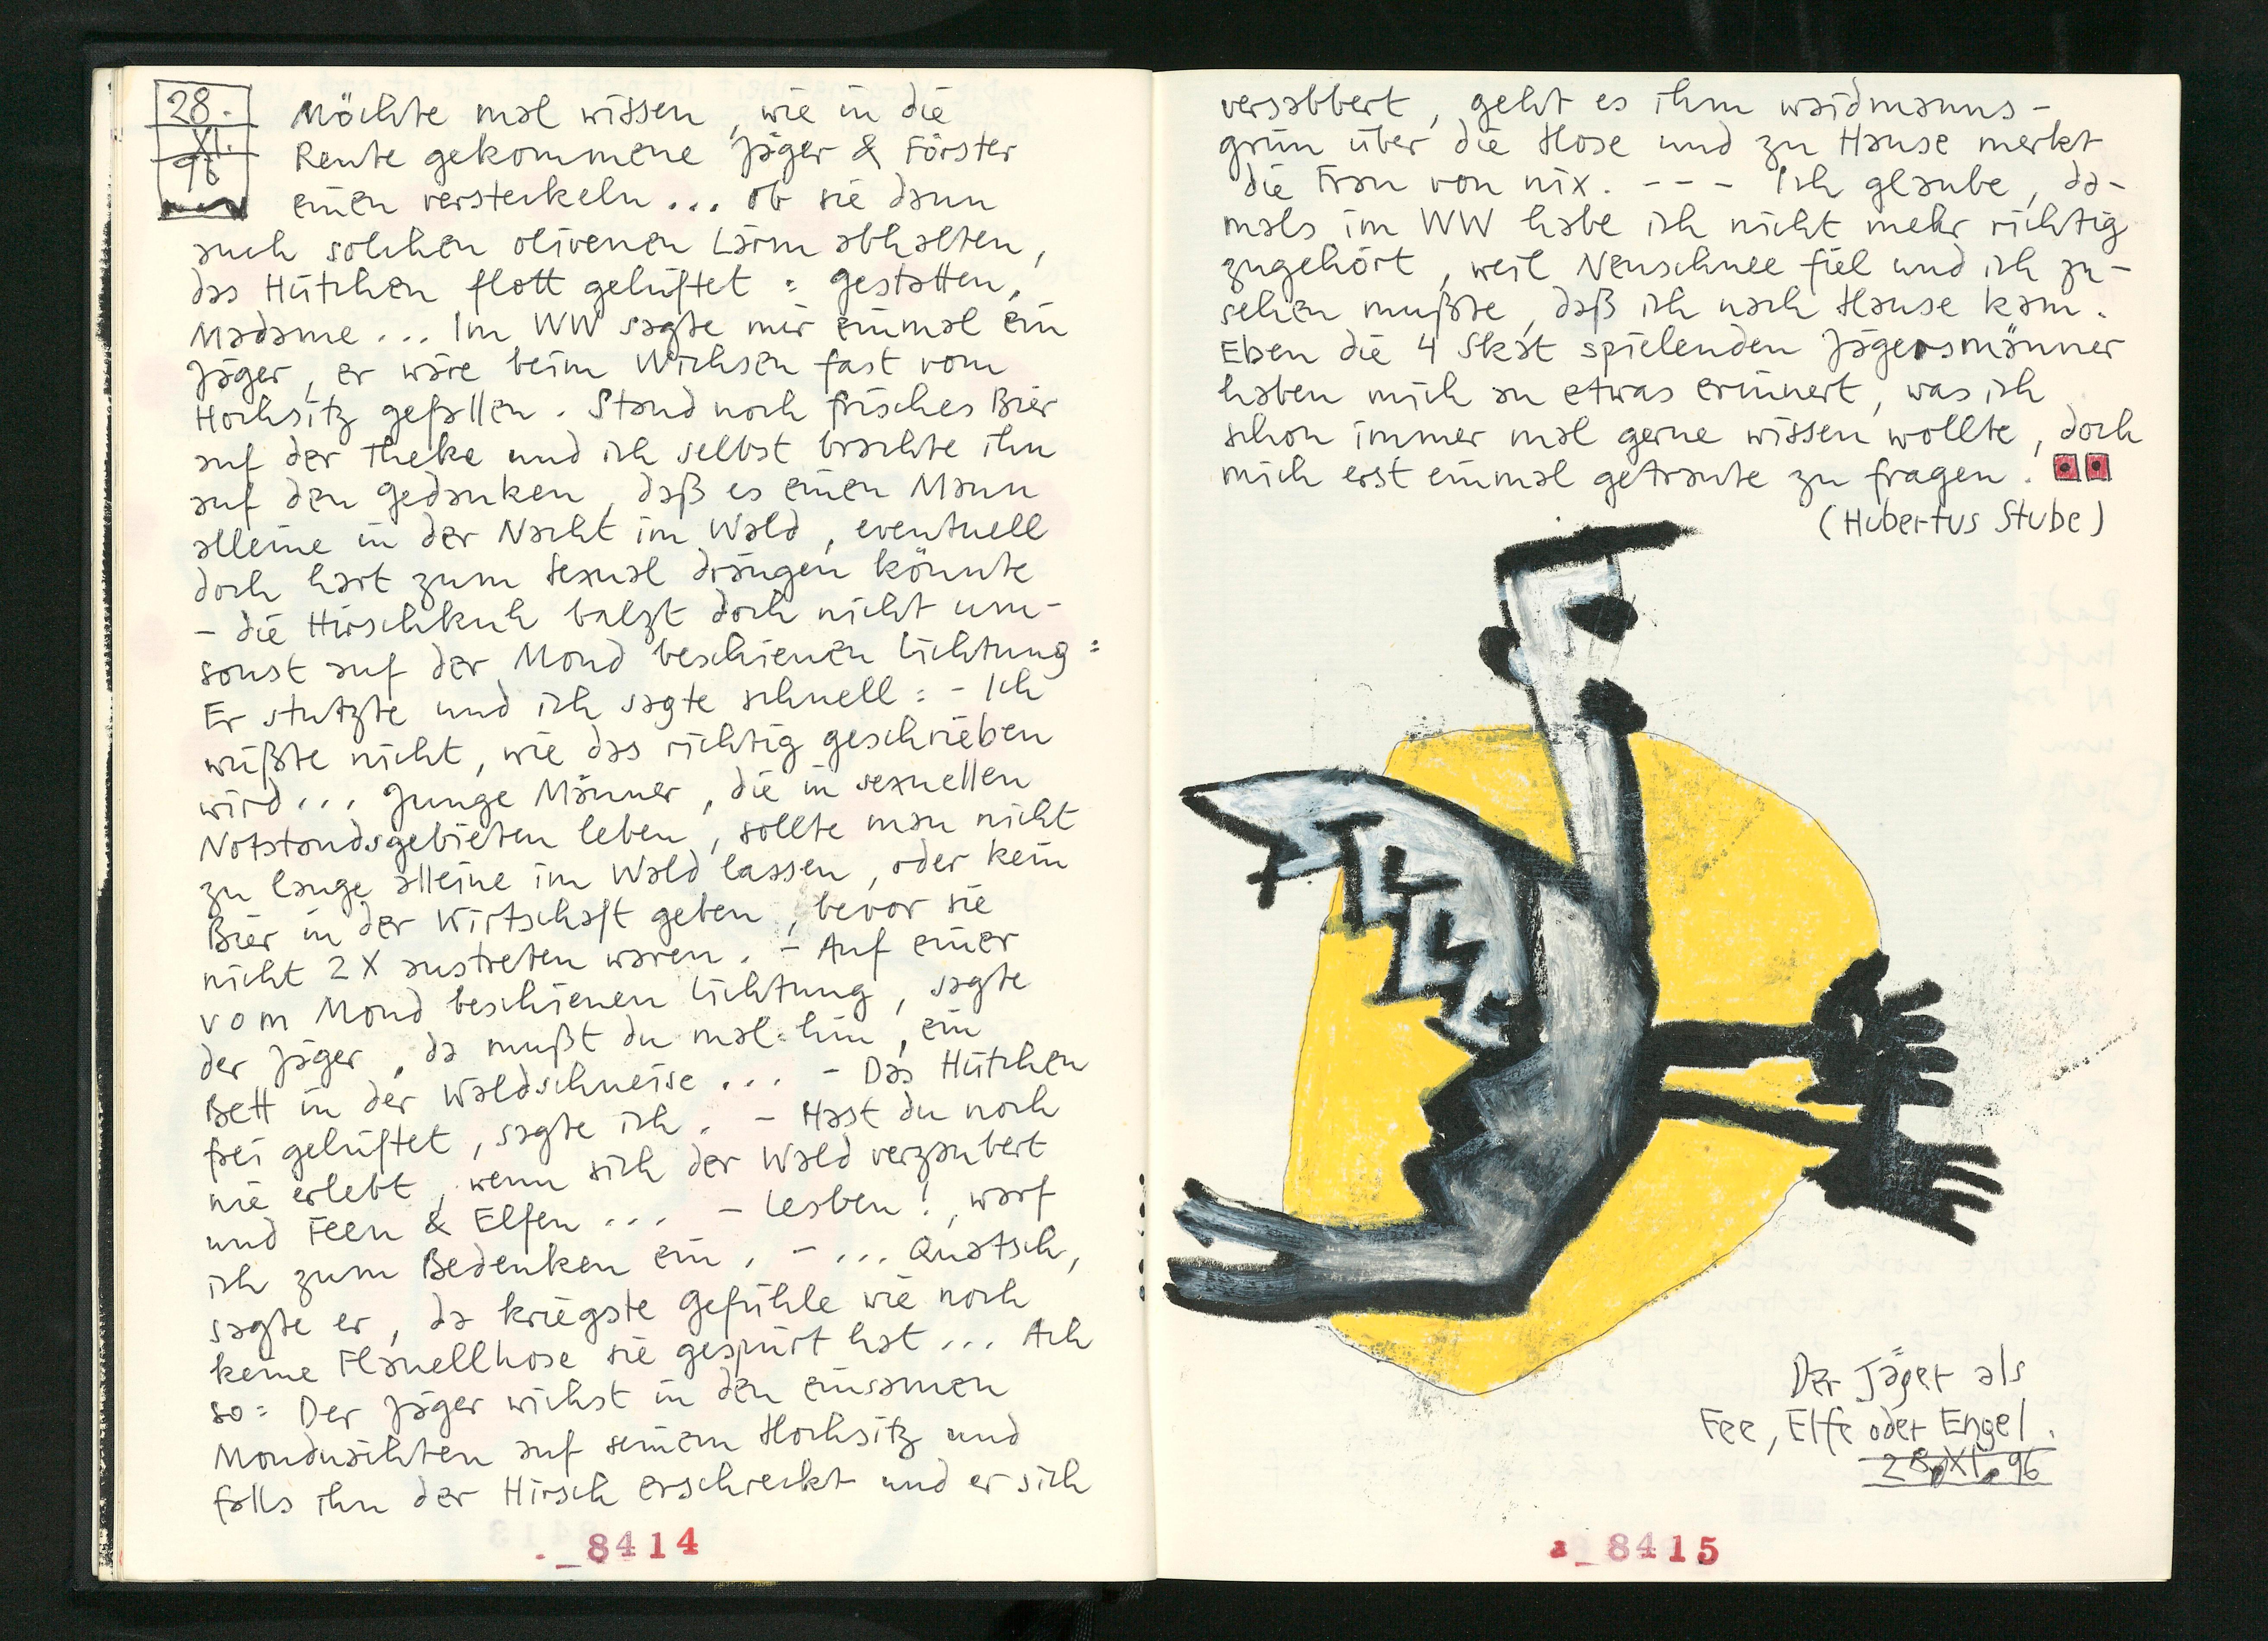 28.
XI.
96
Möchte mal wissen, wie in die
Rente gekommene Jäger & Förster
einen versteckeln... ob sie dann
auch solchen olivenen Lärm abhalten,
das Hütchen flott gelüftet: gestatten,
Madame... Im WW sagte mir einmal ein
Jäger, er wäre beim Wichsen fast vom
Hochsitz gefallen. Stand noch frisches Bier
auf der Theke und ich selbst brachte ihn
auf den Gedanken, daß es einen Mann
alleine in der Nacht im Wald, eventuell
doch hart zum Sexual drängen könnte
- die Hirschkuh balzt doch nicht um-
sonst auf der Mond beschienen Lichtung:
Er stutzte und ich sagte schnell: - Ich
wüßte nicht, wie das richtig geschrieben
wird... Junge Männer, die in sexuellen
Notstandsgebieten leben, sollte man nicht
zu lange alleine im Wald lassen, oder kein
Bier in der Wirtschaft geben, bevor sie
nicht 2X austreten waren. - Auf einer
vom Mond beschienen Lichtung, sagte
der Jäger, da mußt du mal hin, ein
Bett in der Waldschneise... - Das Hütchen
frei gelüftet, sagte ich. - Hast du noch
nie erlebt, wenn sich der Wald verzaubert
und Feen & Elfen... - Lesben!, warf
ich zum Bedenken ein. - ... Quatsch,
sagte er, da kriegste Gefühle wie noch
keine Flanellhose sie gespürt hat... Ach
so: Der Jäger wichst in den einsamen
Mondnächten auf seinem Hochsitz und
falls ihn der Hirsch erschreckt und er sich
8414
versabbert, geht es ihm waidmanns-
grün über die Hose und zu Hause merkt
die Frau von nix. - - - Ich glaube, da-
mals im WW habe ich nicht mehr richtig
zugehört, weil Neuschnee fiel und ich zu-
sehen mußte, daß ich nach Hause kam.
Eben die 4 Skat spielenden Jägersmänner
haben mich an etwas erinnert, was ich
schon immer mal gerne wissen wollte, doch
mich erst einmal getraute zu fragen.
(Hubertus Stube)
Der Jäger als
Fee, Elfe oder Engel.
28.XI.96
8415